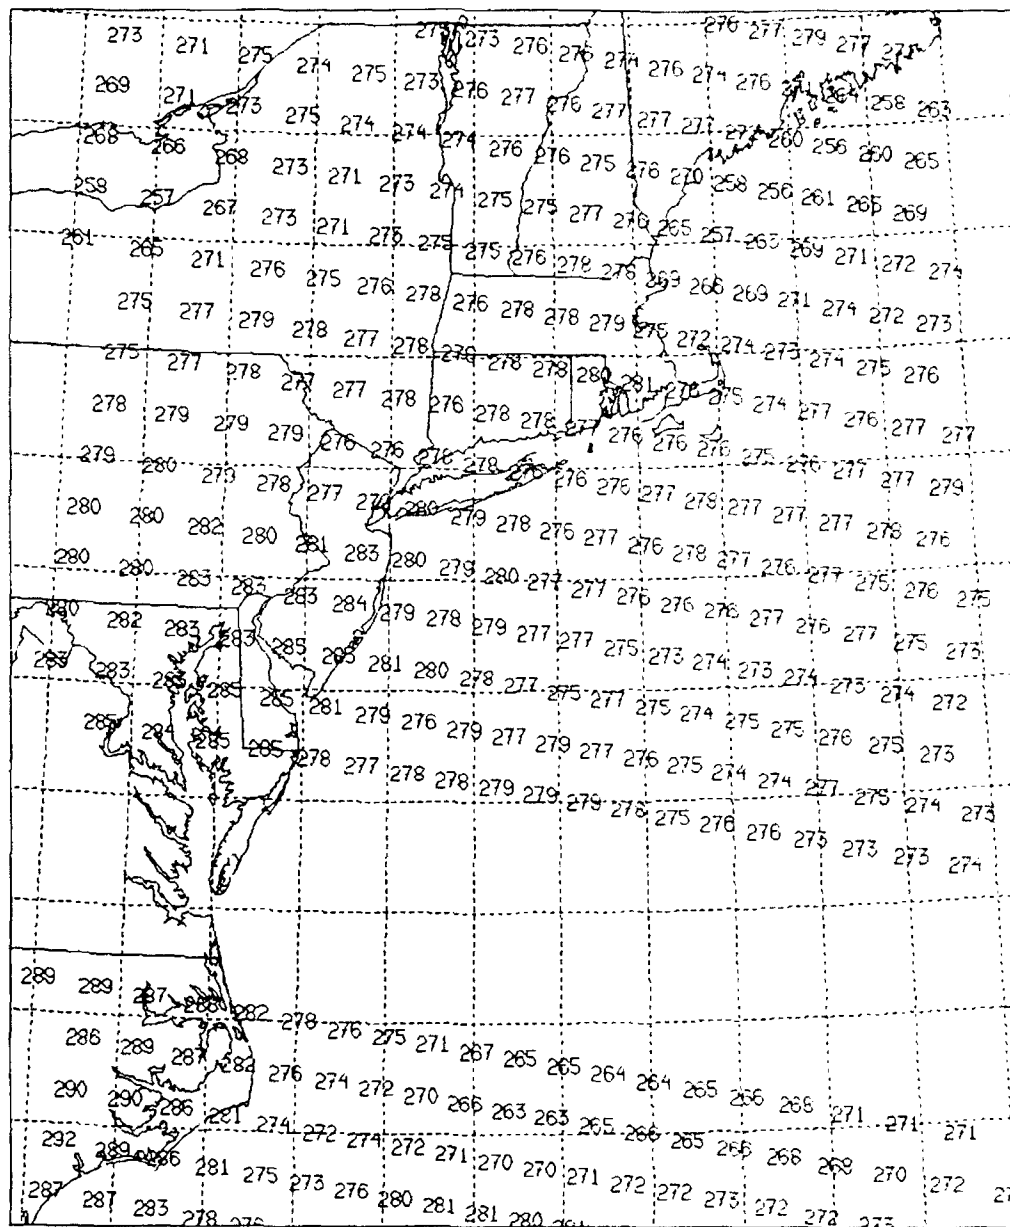 273 271 275 274 275 273 276 277 279 277
273 276 276 274 276 274 276
269 271 273 275 274 274 276 277 276 277 277 258 263
268 266 268 273 271 273 274 276 276 275 276 270 260 256 260 265
258 257 267 273 271 274 275 275 277 276 258 256 261 265 269
261 265 271 276 275 276 278 275 276 278 276 265 257 263 269 271 272 274
275 277 279 278 277 278 276 278 278 279 269 266 269 271 274 272 273
275 277 278 277 277 278 276 278 278 280 281 275 272 274 273 274 275 276
278 279 279 279 276 276 278 278 277 276 276 275 274 277 276 277 277
279 280 279 278 277 280 278 276 276 276 276 275 276 277 277 279
280 280 282 280 281 283 280 279 278 276 277 277 278 277 277 277 278 276
280 280 283 283 283 284 279 279 280 277 277 276 278 277 276 277 275 276 275
280 282 283 283 285 285 281 278 279 277 277 275 276 276 276 277 276 277 275 273
283 283 285 285 281 280 278 277 275 277 273 274 273 274 273 274 272
285 284 285 285 278 279 276 279 277 279 277 275 274 275 275 276 275 273
277 278 278 279 279 279 276 275 274 274 277 275 274 273
278 275 276 276 273 273 273 274
289 289 287 288 282 278 276 275 271 267 265 265 264 264 265 266 268 271 271 271
286 289 287 282 276 274 272 270 266 263 263 265 266 265 266 268 268 270 272
290 290 286 281 274 272 274 272 271 270 270 271 272 272 273 272 272 273
292 289 286 281 275 273 276 280 281 281 280
287 287 283 278 276